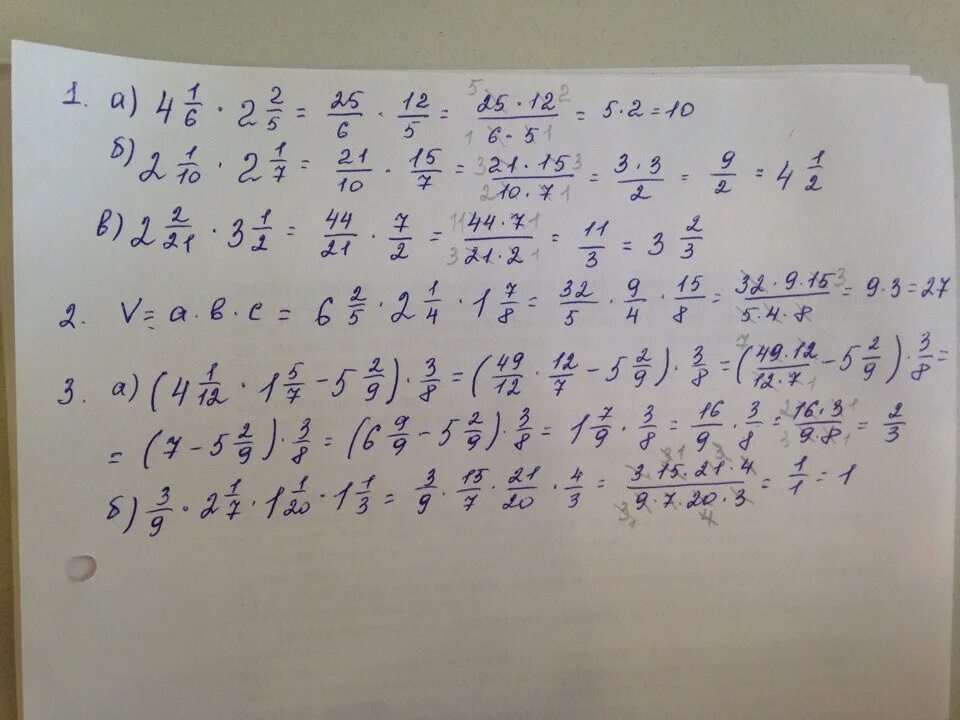 1. а) 4 1/6 · 2 2/5 = 25/6 · 12/5 = 25·12/6·5 = 5·2=10
б) 2 1/10 · 2 1/7 = 21/10 · 15/7 = 21·15/10·7 = 3·3/2 = 9/2 = 4 1/2
в) 2 2/21 · 3 1/2 = 44/21 · 7/2 = 44·7/21·2 = 11/3 = 3 2/3
2. V = а·в·с = 6 2/5 · 2 1/4 · 1 7/8 = 32/5 · 9/4 · 15/8 = 32·9·15/5·4·8 = 9·3=27
3. а) (4 1/12 · 1 5/7 − 5 2/9) · 3/8 = (49/12 · 12/7 − 5 2/9) · 3/8 = (49·12/12·7 − 5 2/9) · 3/8 =
= (7 − 5 2/9) · 3/8 = (6 9/9 − 5 2/9) · 3/8 = 1 7/9 · 3/8 = 16/9 · 3/8 = 16·3/9·8 = 2/3
б) 3/9 · 2 1/7 · 1 1/20 · 1 1/3 = 3/9 · 15/7 · 21/20 · 4/3 = 3·15·21·4/9·7·20·3 = 1/1 = 1